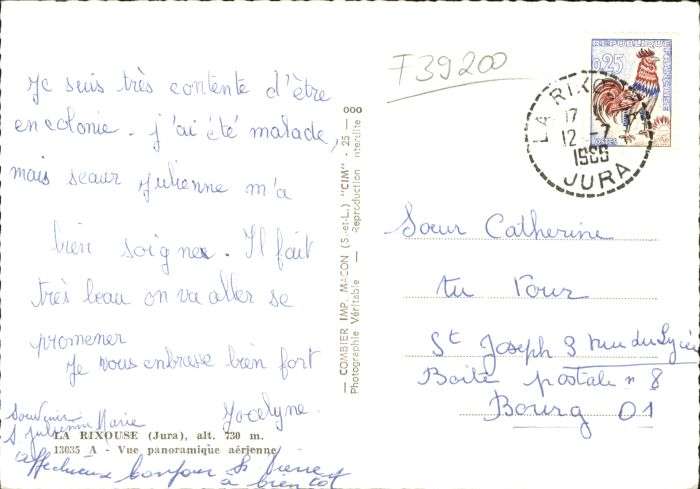 Je suis très contente d'être
en colonie. j'ai été malade,
mais seaur Julienne m'a
bien soignee. Il fait
très beau on va aller se
promener
Je vous embrasse bien fort
Jocelyne.
Souvenir
St Julienne Marie
LA RIXOUSE (Jura), alt. 730 m.
13035 A - Vue panoramique aérienne
affectueux bonjour St Pierre
à bientôt
— COMBIER IMP. MACON (S.-et-L.) "CIM" - 25 — 000
Photographie Véritable — Reproduction interdite
F39200
REPUBLIQUE FRANÇAISE
0,25
POSTES
LA RIXOUSE
17
12 - 7
1966
JURA
Sœur Catherine
tu Tour
St Joseph 3 rue du Lycée
Boite postale n 8
Bourg 01